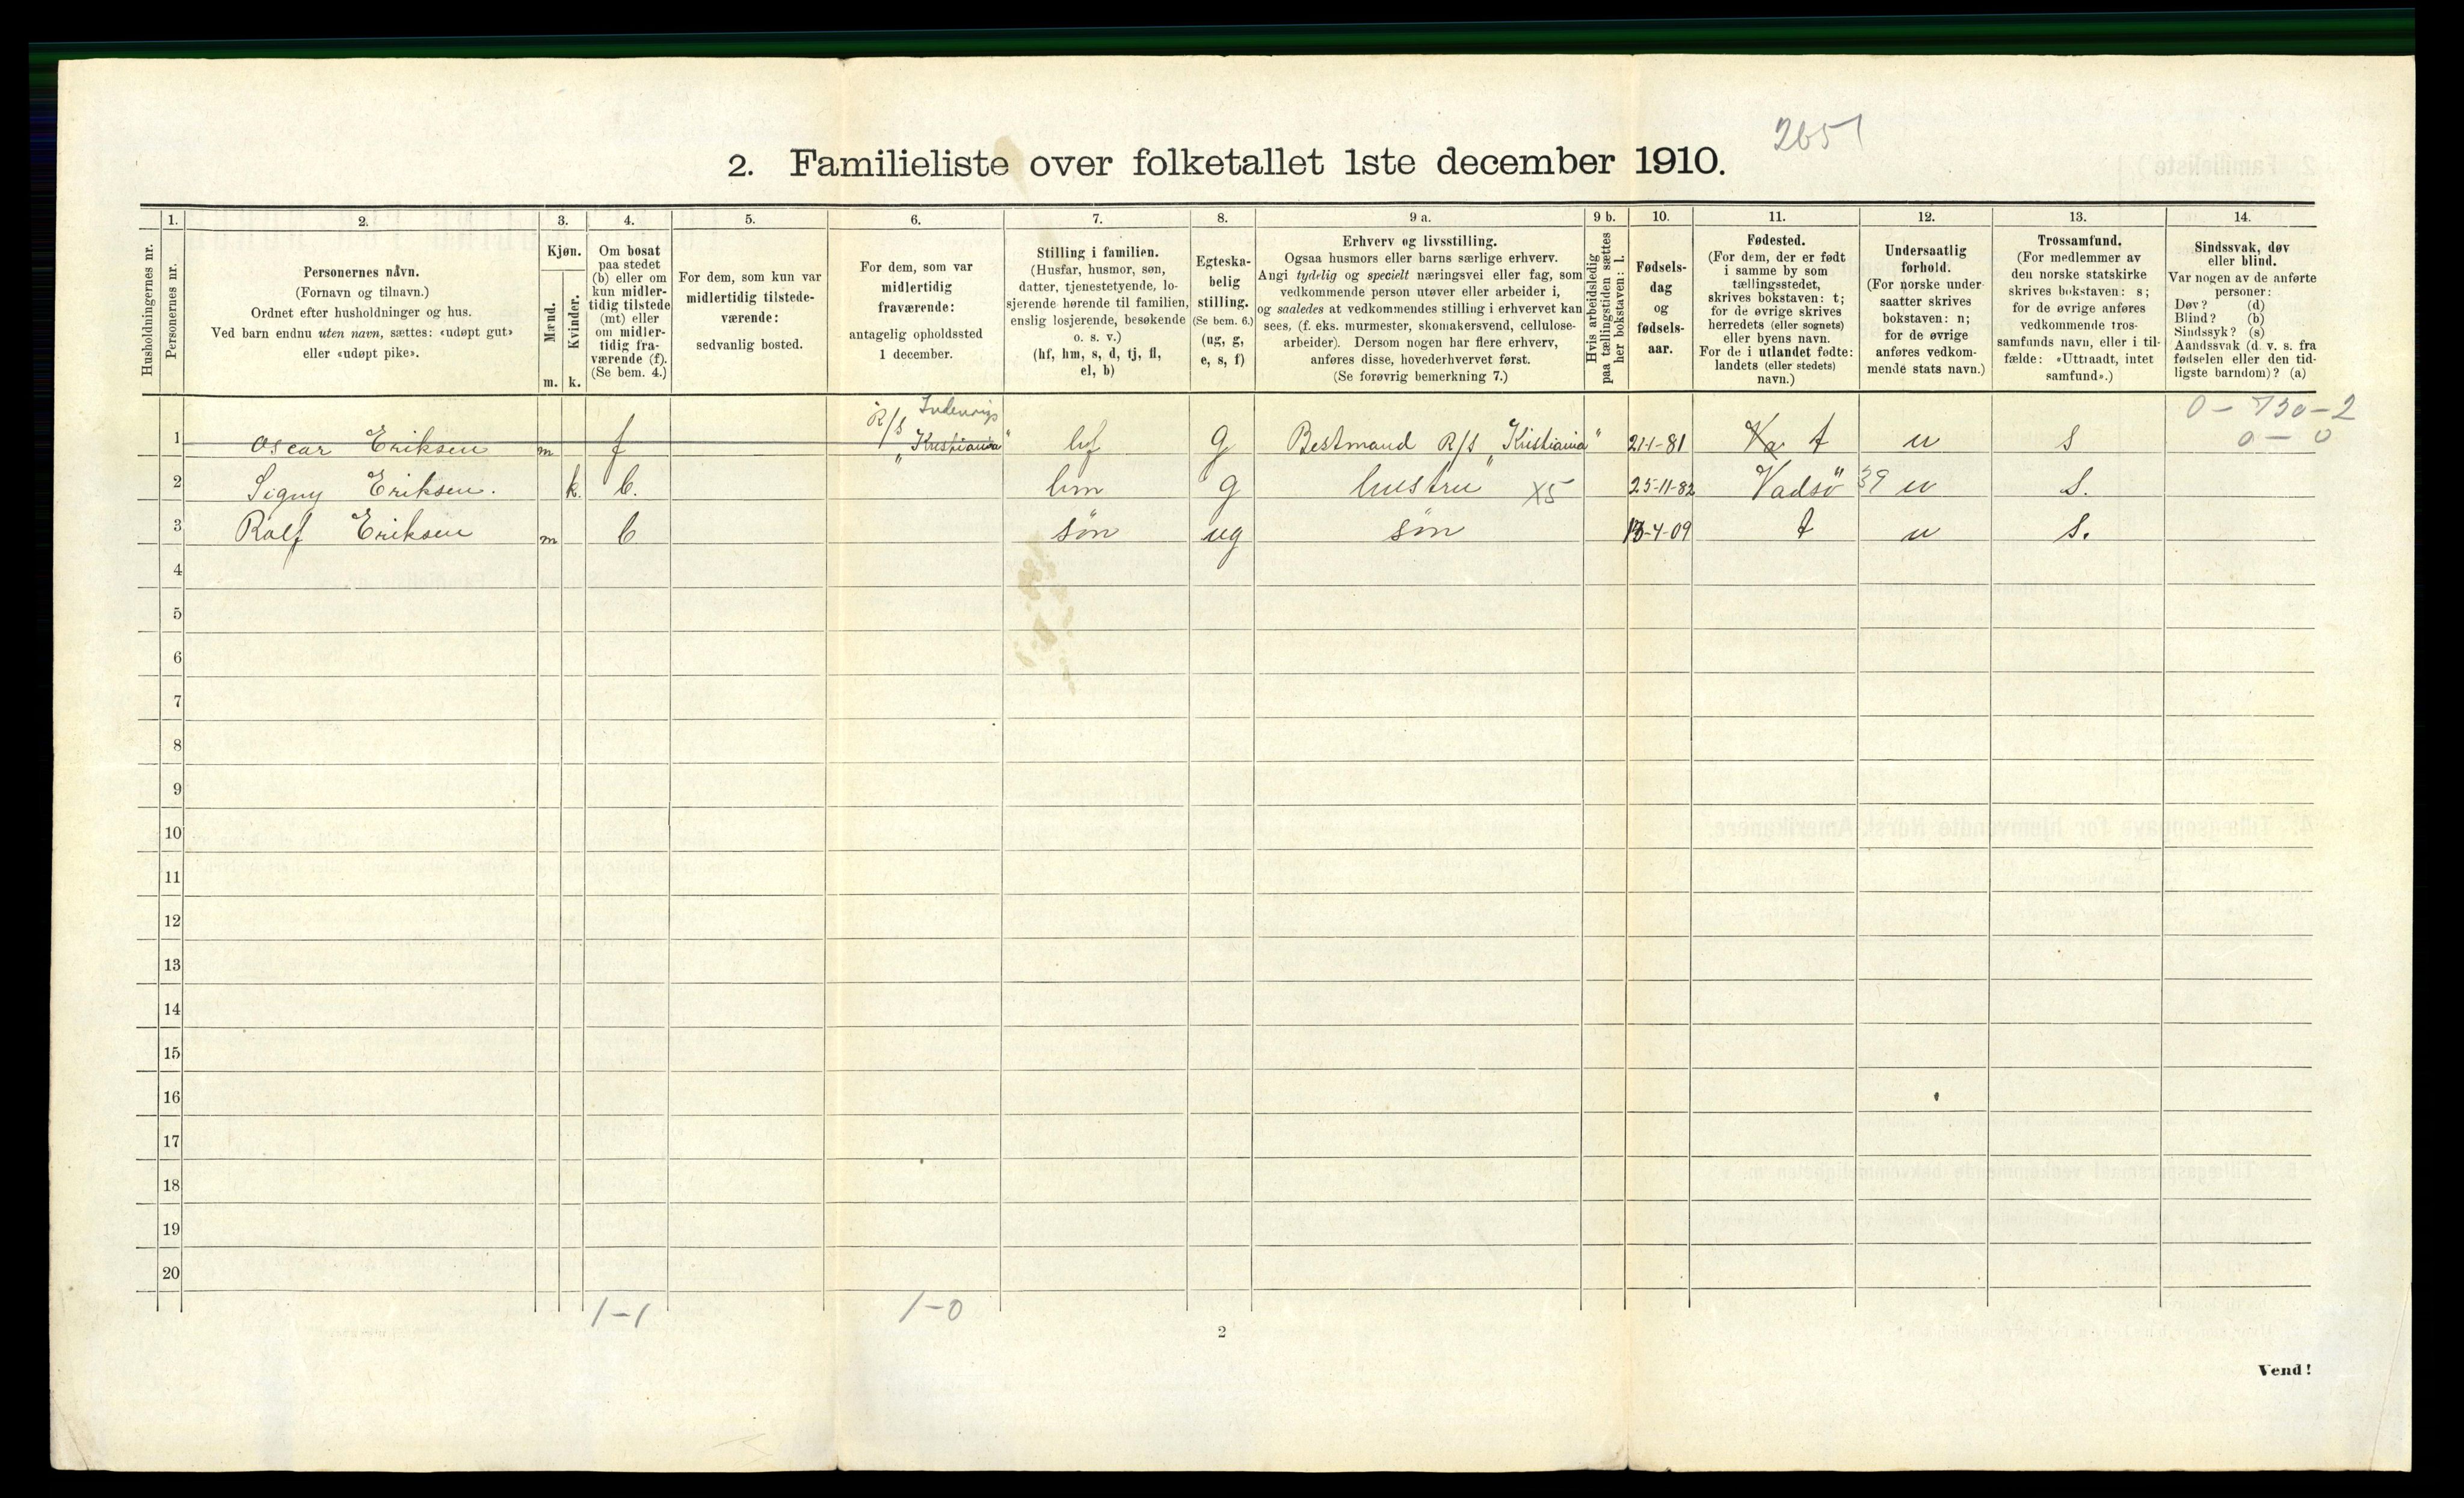 2651
2. Familieliste over folketallet 1ste december 1910.
Husholdningernes nr.
1.
Personernes nr.
2.
Personernes navn.
(Fornavn og tilnavn.)
Ordnet efter husholdninger og hus.
Ved barn endnu uten navn, sættes: «udøpt gut»
eller «udøpt pike».
3.
Kjøn.
Mænd.
Kvinder.
m. k.
4.
Om bosat
paa stedet
(b) eller om
kun midler-
tidig tilstede
(mt) eller
om midler-
tidig fra-
værende (f).
(Se bem. 4.)
5.
For dem, som kun var
midlertidig tilstede-
værende:
sedvanlig bosted.
6.
For dem, som var
midlertidig
fraværende:
antagelig opholdssted
1 december.
7.
Stilling i familien.
(Husfar, husmor, søn,
datter, tjenestetyende, lo-
sjerende hørende til familien,
enslig losjerende, besøkende
o. s. v.)
(hf, hm, s, d, tj, fl,
el, b)
8.
Egteska-
belig
stilling.
(Se bem. 6.)
(ug, g,
e, s, f)
9 a.
Erhverv og livsstilling.
Ogsaa husmors eller barns særlige erhverv.
Angi tydelig og specielt næringsvei eller fag, som
vedkommende person utøver eller arbeider i,
og saaledes at vedkommendes stilling i erhvervet kan
sees, (f. eks. murmester, skomakersvend, cellulose-
arbeider). Dersom nogen har flere erhverv,
anføres disse, hovederhvervet først.
(Se forøvrig bemerkning 7.)
9 b.
Hvis arbeidsledig
paa tællingstiden sættes
her bokstaven: l.
10.
Fødsels-
dag
og
fødsels-
aar.
11.
Fødested.
(For dem, der er født
i samme by som
tællingsstedet,
skrives bokstaven: t;
for de øvrige skrives
herredets (eller sognets)
eller byens navn.
For de i utlandet fødte:
landets (eller stedets)
navn.)
12.
Undersaatlig
forhold.
(For norske under-
saatter skrives
bokstaven: n;
for de øvrige
anføres vedkom-
mende stats navn.)
13.
Trossamfund.
(For medlemmer av
den norske statskirke
skrives bokstaven: s;
for de øvrige anføres
vedkommende tros-
samfunds navn, eller i til-
fælde: «Uttraadt, intet
samfund».)
14.
Sindssvak, døv
eller blind.
Var nogen av de anførte
personer:
Døv? (d)
Blind? (b)
Sindssyk? (s)
Aandssvak (d. v. s. fra
fødselen eller den tid-
ligste barndom)? (a)
Indenrigs 0 - 730 - 2
1 Oscar Eriksen m f R/S „Kristiania" hf g Bestmand R/S „Kristiania" 21-1-81 t n s 0 - 0
2 Signy Eriksen. k b. hm g hustru X5 25-11-82 Vadsö 39 n s.
3 Rolf Eriksen m b søn ug søn 13-4-09 t n s.
4
5
6
7
8
9
10
11
12
13
14
15
16
17
18
19
20
1-1 1-0
2
Vend!